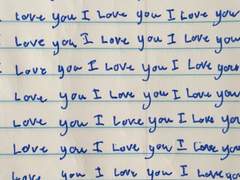 Love you I Love you I Love you
Love you I Love you I Love you
Love you I Love you I Love you
Love you I Love you I Love you
Love you I Love you I Love you
Love you I Love you I Love you
Love you I Love you I Love you